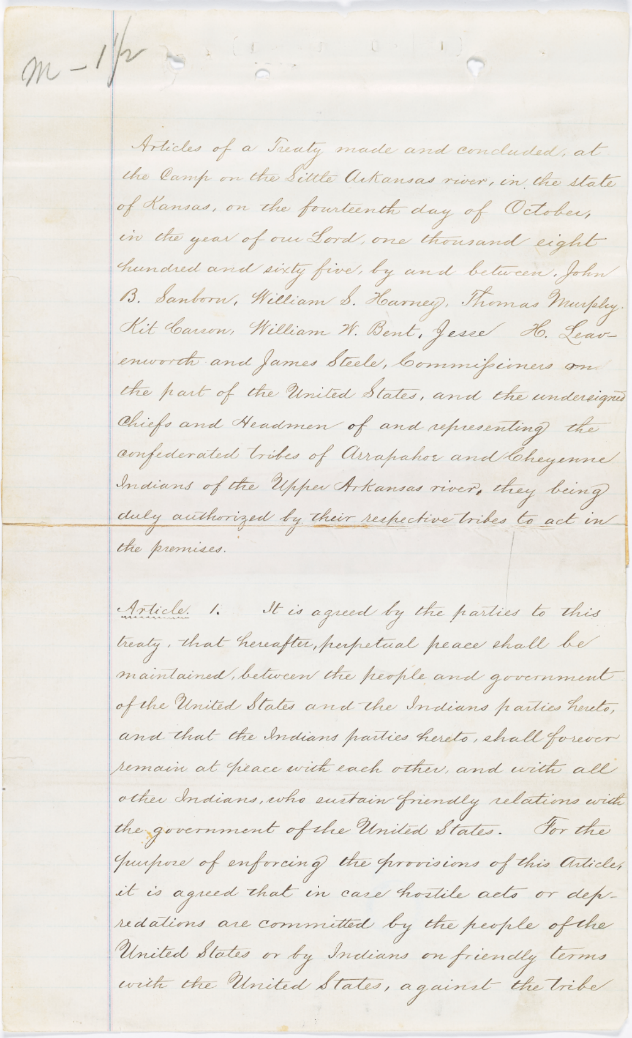 M - 1 1/2
Articles of a Treaty made and concluded, at
the Camp on the Little Arkansas river, in the state
of Kansas, on the fourteenth day of October,
in the year of our Lord, one thousand eight
hundred and sixty five, by and between, John
B. Sanborn, William S. Harney, Thomas Murphy.
Kit Carson, William W. Bent, Jesse H. Leav-
enworth and James Steele, Commissioners on
the part of the United States, and the undersigned
Chiefs and Headmen of and representing the
confederated tribes of Arrapahoe and Cheyenne
Indians of the Upper Arkansas river, they being
duly authorized by their respective tribes to act in
the premises.
Article 1. It is agreed by the parties to this
treaty, that hereafter, perpetual peace shall be
maintained, between the people and government
of the United States and the Indians parties hereto,
and that the Indians parties hereto, shall forever
remain at peace with each other, and with all
other Indians, who sustain friendly relations with
the government of the United States. For the
purpose of enforcing the provisions of this Article,
it is agreed that in case hostile acts or dep-
redations are committed by the people of the
United States or by Indians on friendly terms
with the United States, against the tribe